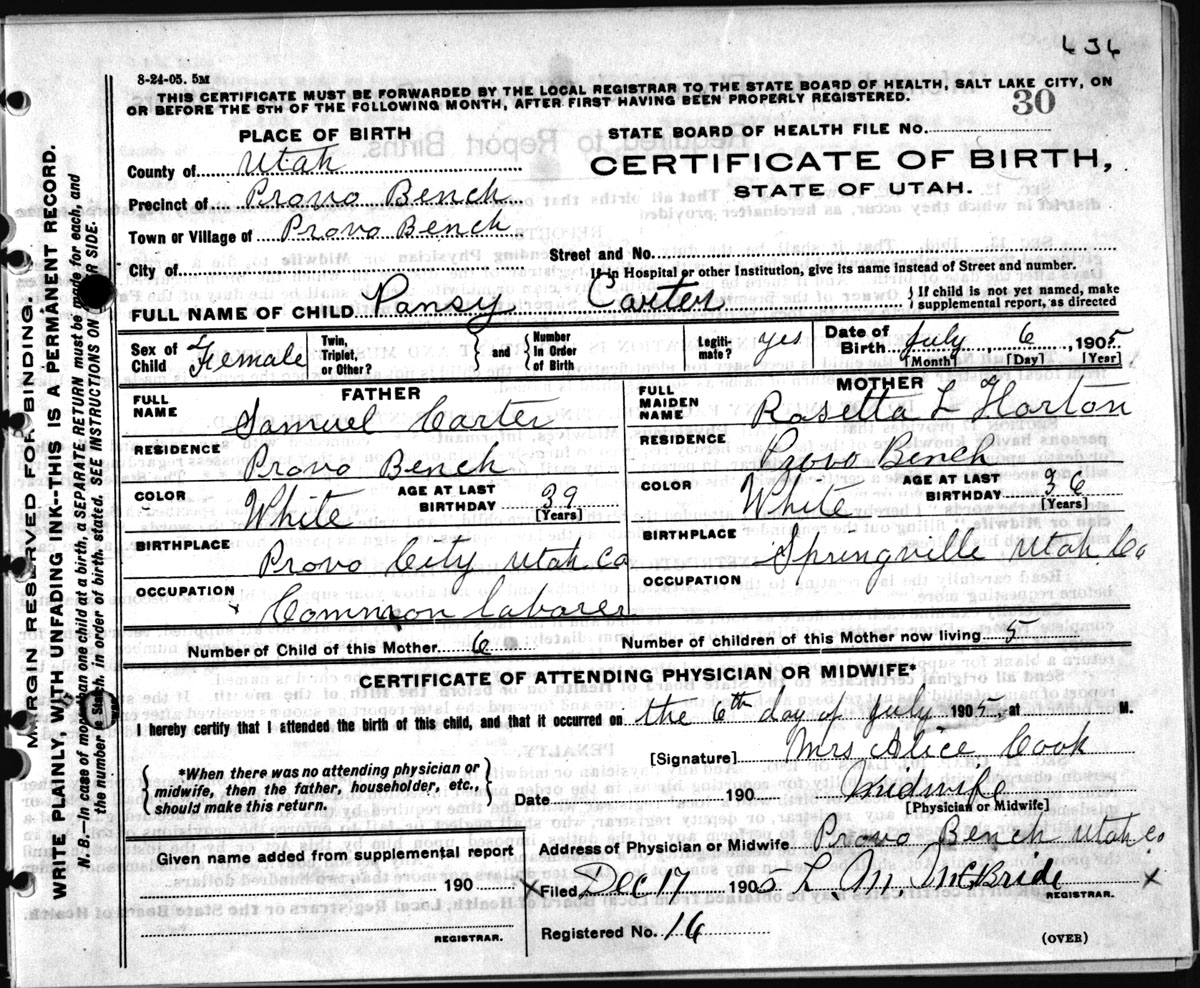 434
8-24-05. 5M
THIS CERTIFICATE MUST BE FORWARDED BY THE LOCAL REGISTRAR TO THE STATE BOARD OF HEALTH, SALT LAKE CITY, ON
OR BEFORE THE 5TH OF THE FOLLOWING MONTH, AFTER FIRST HAVING BEEN PROPERLY REGISTERED.
30
PLACE OF BIRTH
STATE BOARD OF HEALTH FILE No.
County of Utah
CERTIFICATE OF BIRTH,
STATE OF UTAH.
Precinct of Provo Bench
Town or Village of Provo Bench
Street and No.
City of
If in Hospital or other Institution, give its name instead of Street and number.
FULL NAME OF CHILD Pansy Carter
{ If child is not yet named, make supplemental report, as directed
Sex of Child Female
Twin, Triplet, or Other?
and
Number in Order of Birth
Legitimate? yes
Date of Birth July 6, 1905
[Month] [Day] [Year]
FATHER
FULL NAME Samuel Carter
RESIDENCE Provo Bench
COLOR White
AGE AT LAST BIRTHDAY 39
[Years]
BIRTHPLACE Provo City Utah Co
OCCUPATION
Common laborer
MOTHER
FULL MAIDEN NAME Rosetta L Harton
RESIDENCE Provo Bench
COLOR White
AGE AT LAST BIRTHDAY 36
[Years]
BIRTHPLACE Springville Utah Co
OCCUPATION
Number of Child of this Mother 6
Number of children of this Mother now living 5
CERTIFICATE OF ATTENDING PHYSICIAN OR MIDWIFE*
I hereby certify that I attended the birth of this child, and that it occurred on the 6th day of July 1905, at M.
[Signature] Mrs Alice Cook
{ *When there was no attending physician or
midwife, then the father, householder, etc.,
should make this return. }
Date 190 Midwife
[Physician or Midwife]
Given name added from supplemental report
190
REGISTRAR.
Address of Physician or Midwife Provo Bench Utah Co
X Filed Dec 17 1905 L. M. McBride X
REGISTRAR.
Registered No. 16
(OVER)
MARGIN RESERVED FOR BINDING.
WRITE PLAINLY, WITH UNFADING INK--THIS IS A PERMANENT RECORD.
N. B.--In case of more than one child at a birth, a SEPARATE RETURN must be made for each, and
the number of each, in order of birth, stated. SEE INSTRUCTIONS ON OTHER SIDE.